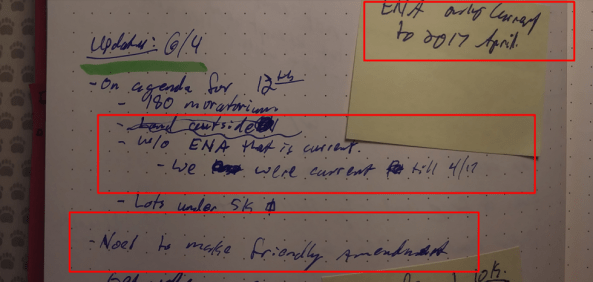 ENA only current
to 2017 April.
Updates: 6/4
- On agenda for 12th
- 180 moratorium
- outside
- w/o ENA that is current.
- We were current till 4/17
- Lots under 5K
- Noel to make friendly amendment
10K.